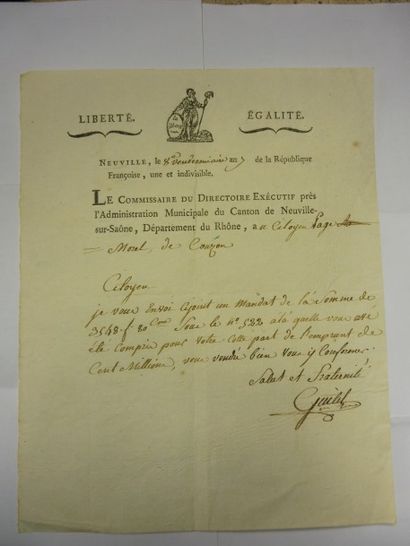 LIBERTÉ. ÉGALITÉ.
NEUVILLE, le 8 Vendemiaire an 7 de la République
Françoise, une et indivisible.
LE COMMISSAIRE DU DIRECTOIRE EXÉCUTIF près
l'Administration Municipale du Canton de Neuville-
sur-Saône, Département du Rhône, au Citoyen
Morel de Couzon
Citoyen
je vous Envoi cijoint un Mandat de la Somme de
3548 f 80 Sous le n° 522 a la quelle vous avé
été Compris pour Votre Cotte part de l'emprunt de
Cent Millions, vous voudré bien vous y Conformé.
Salut et Fraternité